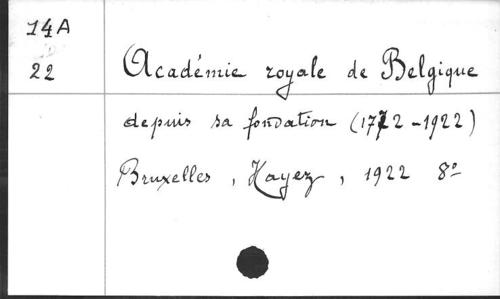 14A
22
Académie royale de Belgique
depuis sa fondation (1772-1922)
Bruxelles, Hayez, 1922 8°